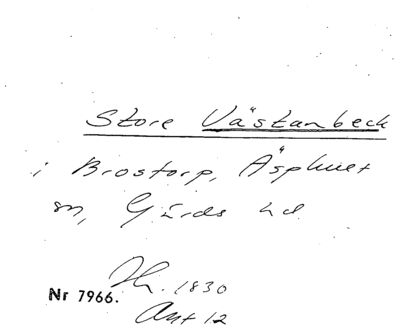 Store Västanbeck
i Brostorp, Äsphult
sn, Gärds hd.
Nr 7966.
1830
Akt 12